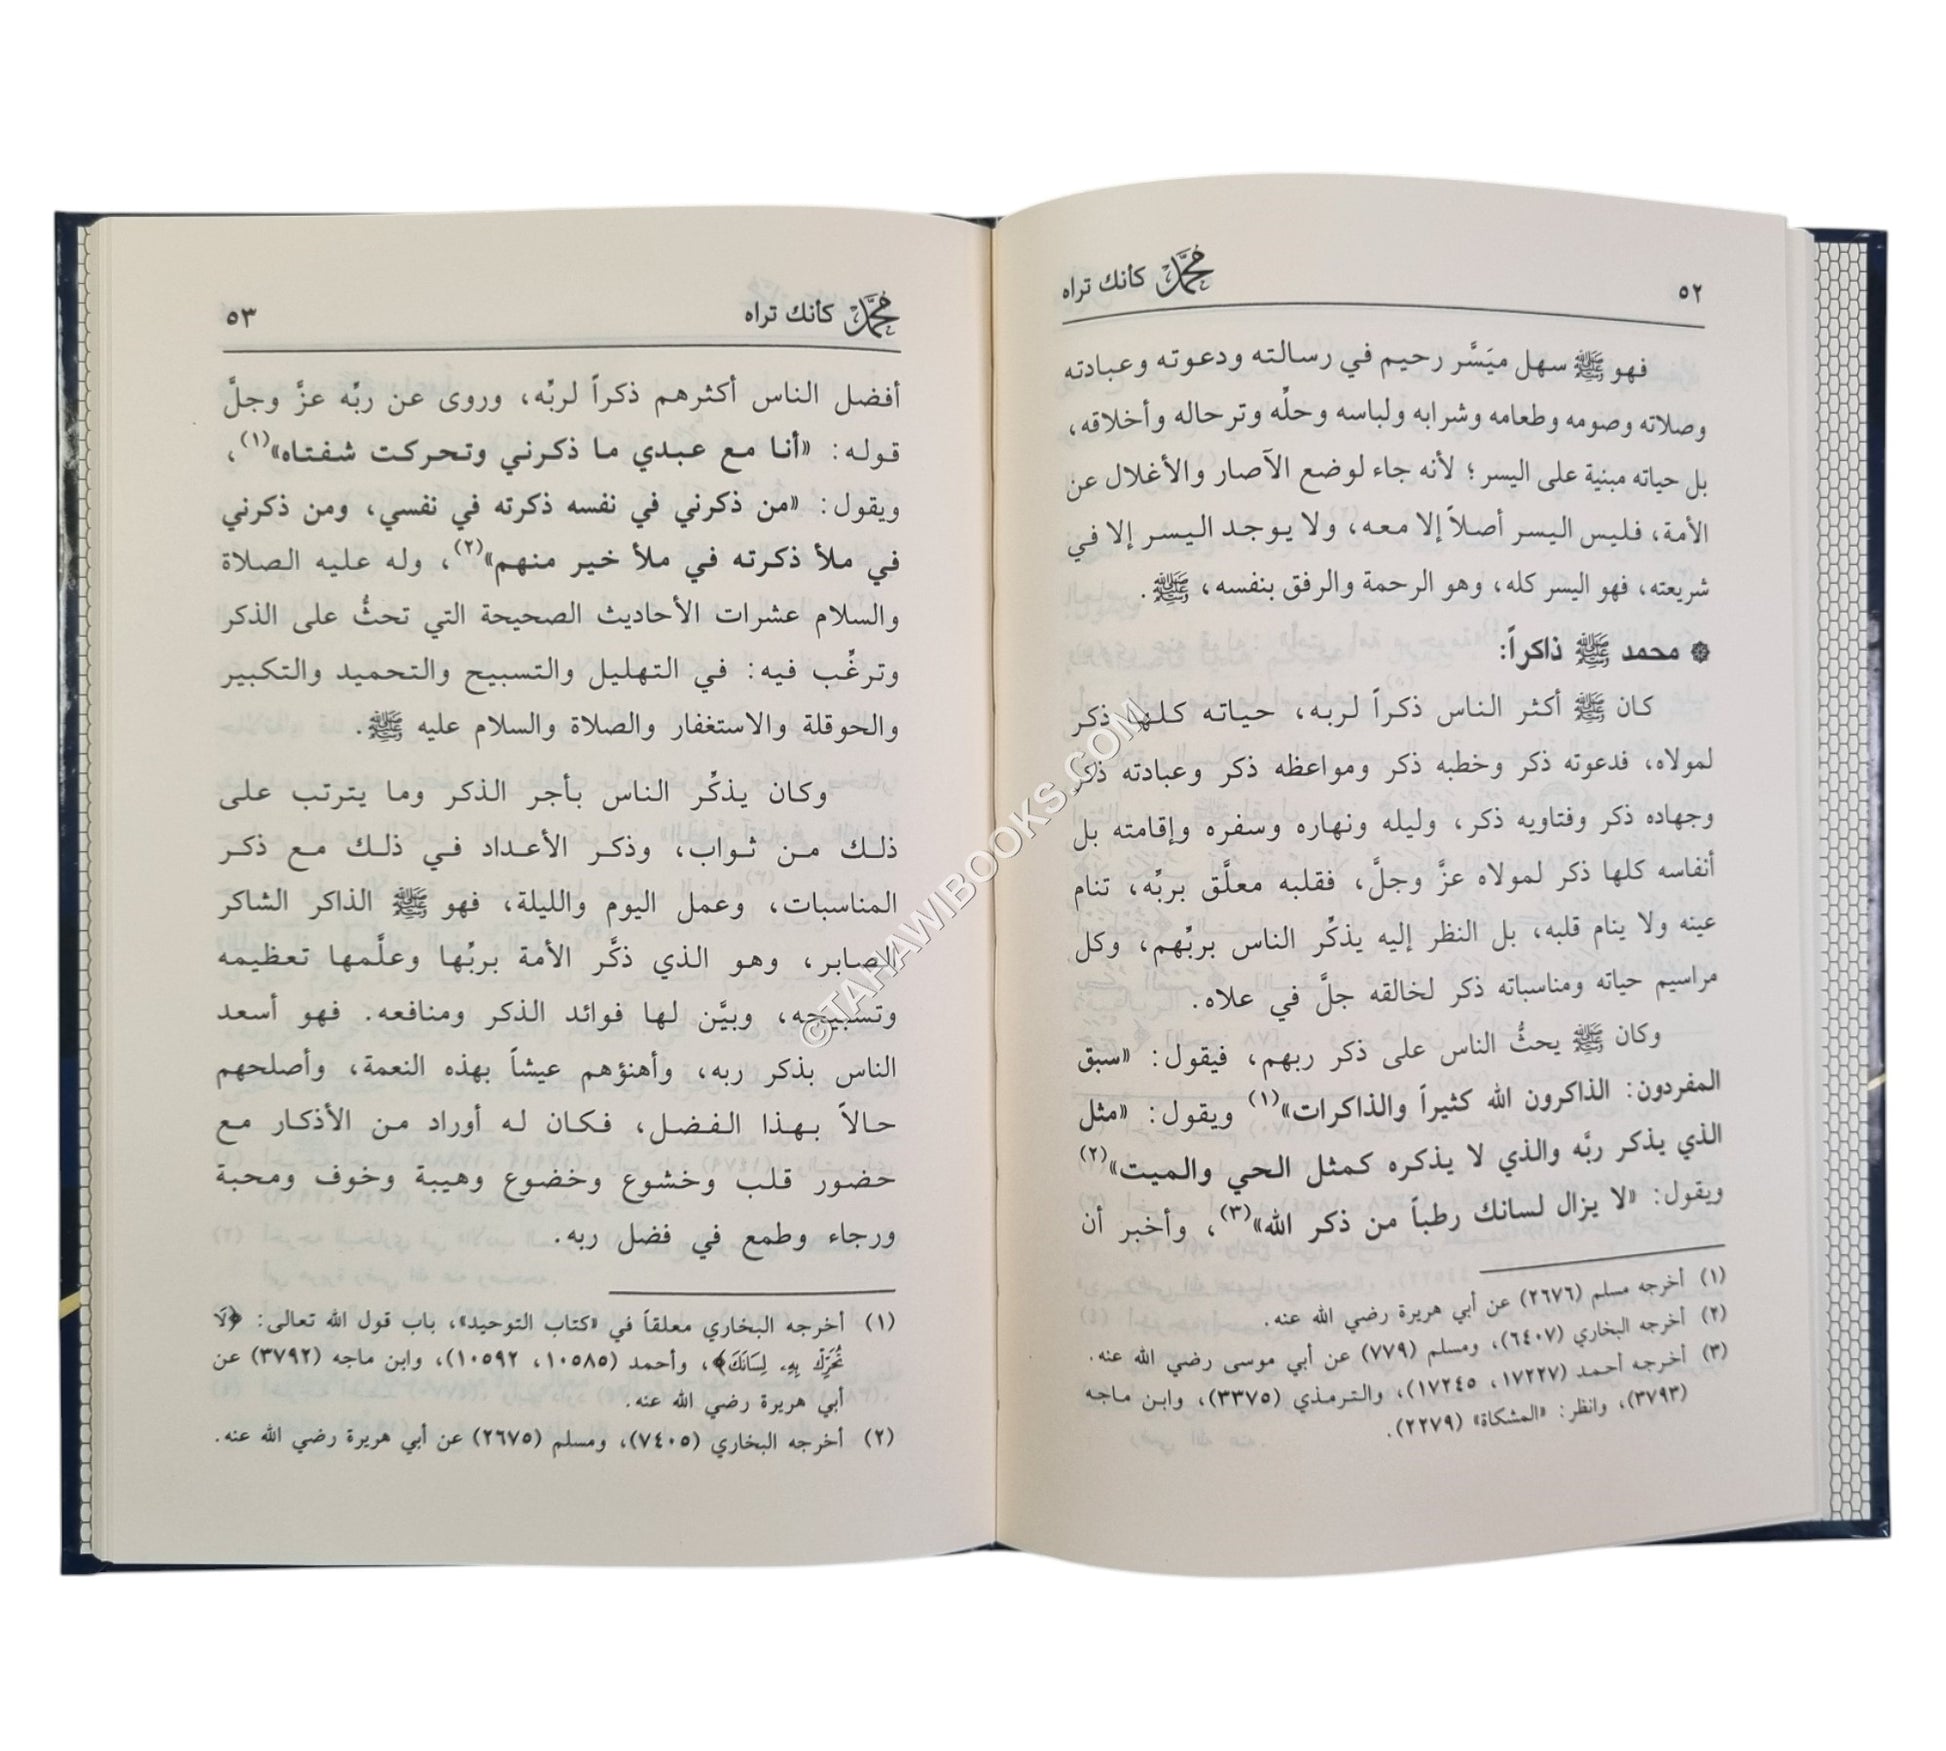 ٥٢
محمد كأنك تراه
فهو ﷺ سهل ميَسَّر رحيم في رسالته ودعوته وعبادته
وصلاته وصومه وطعامه وشرابه ولباسه وحلِّه وترحاله وأخلاقه،
بل حياته مبنية على اليسر؛ لأنه جاء لوضع الآصار والأغلال عن
الأمة، فليس اليسر أصلاً إلا معه، ولا يوجد اليسر إلا في
شريعته، فهو اليسر كله، وهو الرحمة والرفق بنفسه، ﷺ.
محمد ﷺ ذاكراً:
كان ﷺ أكثر الناس ذكراً لربه، حياته كلها ذكر
لمولاه، فدعوته ذكر وخطبه ذكر ومواعظه ذكر وعبادته ذكر
وجهاده ذكر وفتاويه ذكر، وليله ونهاره وسفره وإقامته بل
أنفاسه كلها ذكر لمولاه عزَّ وجلَّ، فقلبه معلَّق بربِّه، تنام
عينه ولا ينام قلبه، بل النظر إليه يذكِّر الناس بربِّهم، وكل
مراسيم حياته ومناسباته ذكر لخالقه جلَّ في علاه.
وكان ﷺ يحثُّ الناس على ذكر ربهم، فيقول: «سبق
المفردون: الذاكرون الله كثيراً والذاكرات»(١) ويقول: «مثل
الذي يذكر ربَّه والذي لا يذكره كمثل الحي والميت»(٢)
ويقول: «لا يزال لسانك رطباً من ذكر الله»(٣)، وأخبر أن
(١) أخرجه مسلم (٢٦٧٦) عن أبي هريرة رضي الله عنه.
(٢) أخرجه البخاري (٦٤٠٧)، ومسلم (٧٧٩) عن أبي موسى رضي الله عنه.
(٣) أخرجه أحمد (١٧٢٢٧، ١٧٢٤٥)، والترمذي (٣٣٧٥)، وابن ماجه
(٣٧٩٣)، وانظر: «المشكاة» (٢٢٧٩).
محمد كأنك تراه
٥٣
أفضل الناس أكثرهم ذكراً لربِّه، وروى عن ربِّه عزَّ وجلَّ
قوله: «أنا مع عبدي ما ذكرني وتحركت شفتاه»(١)،
ويقول: «من ذكرني في نفسه ذكرته في نفسي، ومن ذكرني
في ملأ ذكرته في ملأ خير منهم»(٢)، وله عليه الصلاة
والسلام عشرات الأحاديث الصحيحة التي تحثُّ على الذكر
وترغِّب فيه: في التهليل والتسبيح والتحميد والتكبير
والحوقلة والاستغفار والصلاة والسلام عليه ﷺ.
وكان يذكِّر الناس بأجر الذكر وما يترتب على
ذلك من ثواب، وذكر الأعداد في ذلك مع ذكر
المناسبات، وعمل اليوم والليلة، فهو ﷺ الذاكر الشاكر
الصابر، وهو الذي ذكَّر الأمة بربِّها وعلَّمها تعظيمه
وتسبيحه، وبيَّن لها فوائد الذكر ومنافعه. فهو أسعد
الناس بذكر ربه، وأهنؤهم عيشاً بهذه النعمة، وأصلحهم
حالاً بهذا الفضل، فكان له أوراد من الأذكار مع
حضور قلب وخشوع وخضوع وهيبة وخوف ومحبة
ورجاء وطمع في فضل ربه.
(١) أخرجه البخاري معلقاً في «كتاب التوحيد»، باب قول الله تعالى: ﴿لَا
تُحَرِّكْ بِهِۦ لِسَانَكَ﴾، وأحمد (١٠٥٨٥، ١٠٥٩٢)، وابن ماجه (٣٧٩٢) عن
أبي هريرة رضي الله عنه.
(٢) أخرجه البخاري (٧٤٠٥)، ومسلم (٢٦٧٥) عن أبي هريرة رضي الله عنه.
©TAHAWIBOOKS.COM